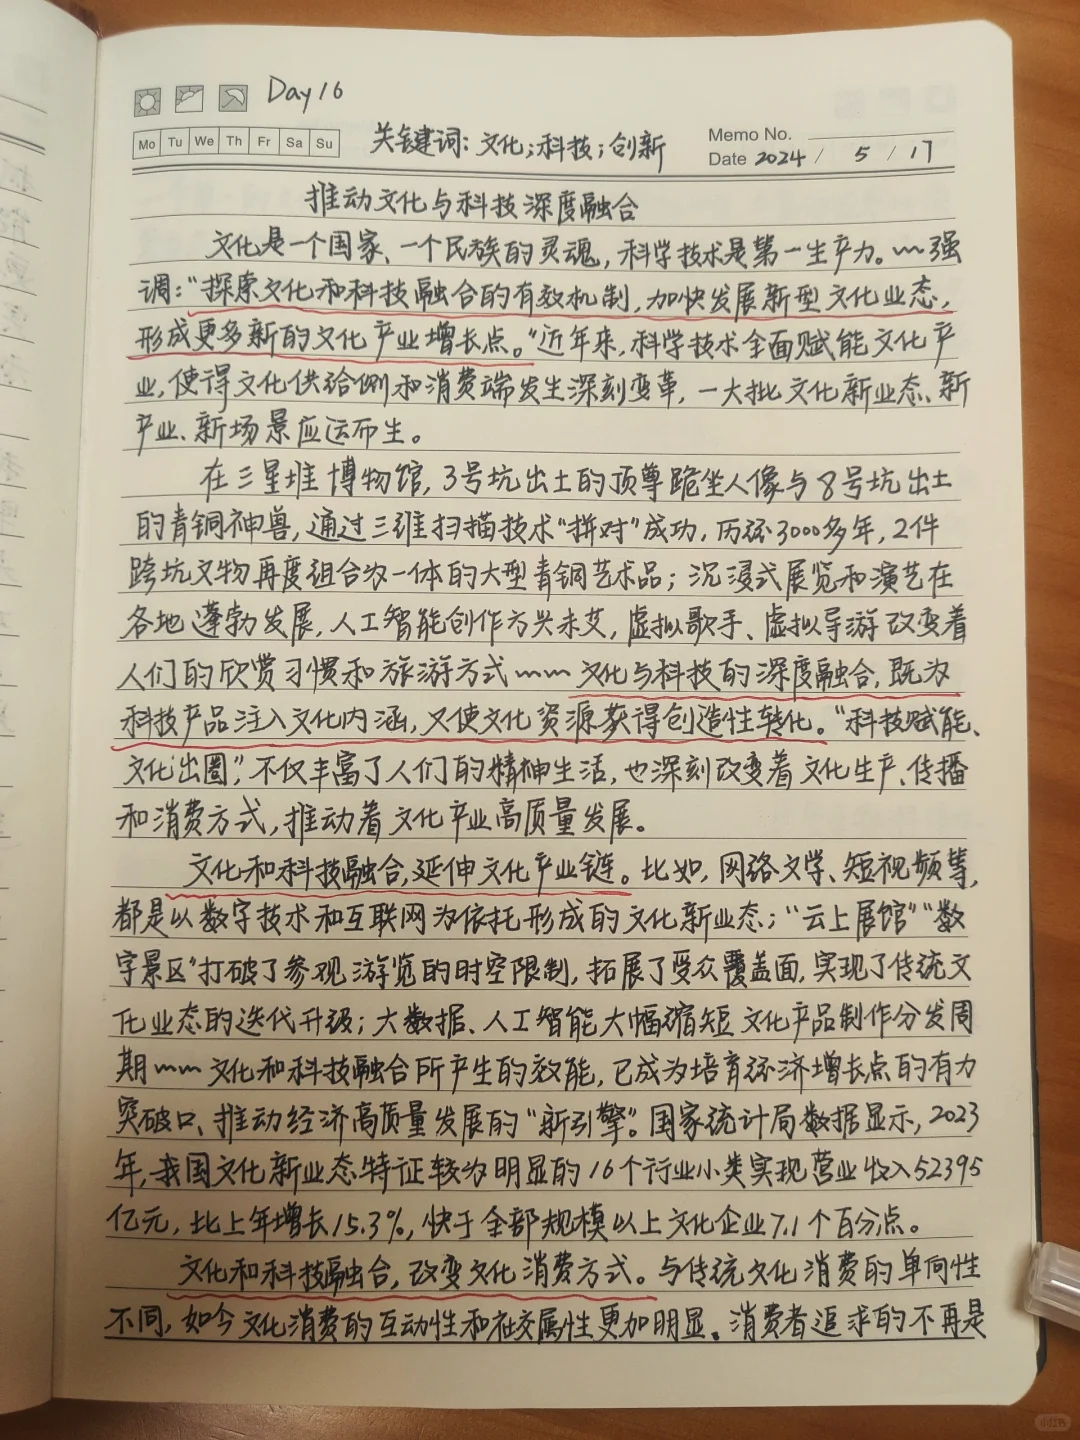 Day 16
Mo Tu We Th Fr Sa Su
关键词：文化；科技；创新
Memo No.
Date 2024 / 5 / 17
推动文化与科技深度融合
文化是一个国家、一个民族的灵魂，科学技术是第一生产力。~~强
调："探索文化和科技融合的有效机制，加快发展新型文化业态，
形成更多新的文化产业增长点。"近年来，科学技术全面赋能文化产
业，使得文化供给侧和消费端发生深刻变革，一大批文化新业态、新
产业、新场景应运而生。
在三星堆博物馆，3号坑出土的顶尊跪坐人像与8号坑出土
的青铜神兽，通过三维扫描技术"拼对"成功，历经3000多年，2件
跨坑文物再度组合为一体的大型青铜艺术品；沉浸式展览和演艺在
各地蓬勃发展，人工智能创作方兴未艾，虚拟歌手、虚拟导游改变着
人们的欣赏习惯和旅游方式~~文化与科技的深度融合，既为
科技产品注入文化内涵，又使文化资源获得创造性转化。"科技赋能、
文化出圈"，不仅丰富了人们的精神生活，也深刻改变着文化生产、传播
和消费方式，推动着文化产业高质量发展。
文化和科技融合，延伸文化产业链。比如，网络文学、短视频等，
都是以数字技术和互联网为依托形成的文化新业态；"云上展馆""数
字景区"打破了参观游览的时空限制，拓展了受众覆盖面，实现了传统文
化业态的迭代升级；大数据、人工智能大幅缩短文化产品制作分发周
期~~文化和科技融合所产生的效能，已成为培育经济增长点的有力
突破口、推动经济高质量发展的"新引擎"。国家统计局数据显示，2023
年，我国文化新业态特征较为明显的16个行业小类实现营业收入52395
亿元，比上年增长15.3%，快于全部规模以上文化企业7.1个百分点。
文化和科技融合，改变文化消费方式。与传统文化消费的单向性
不同，如今文化消费的互动性和社交属性更加明显。消费者追求的不再是
小红书